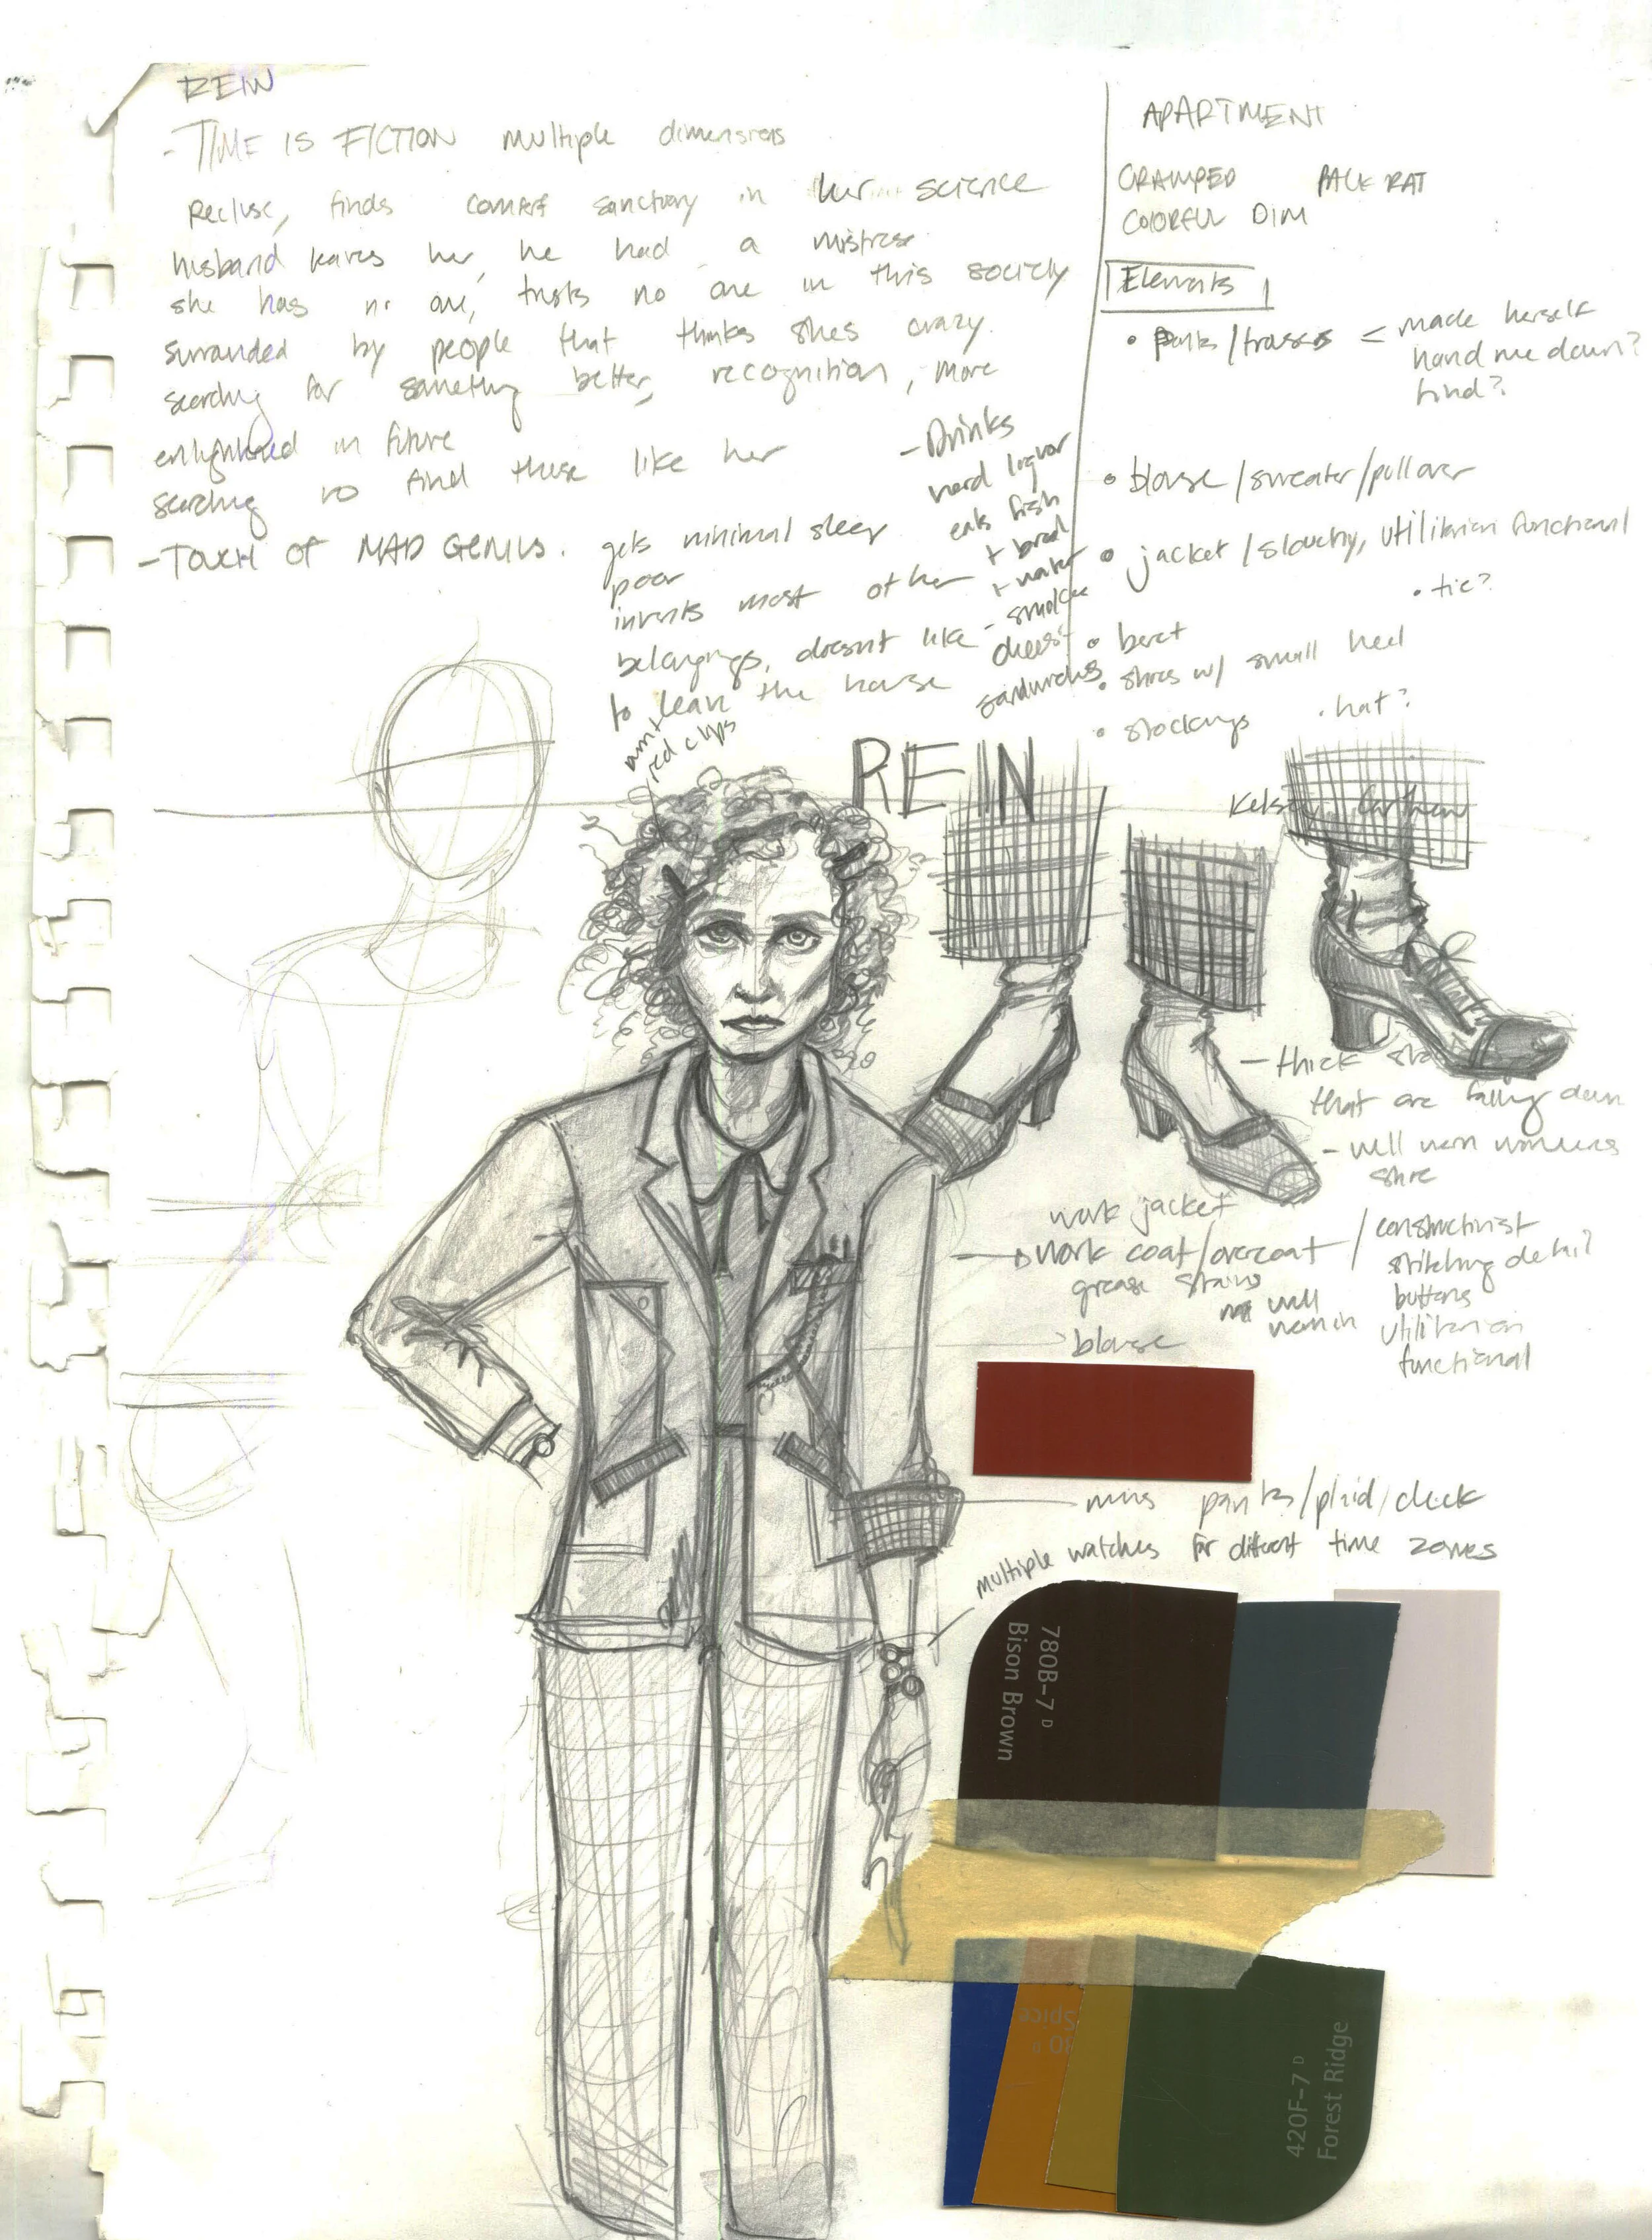 REIN
- TIME IS FICTION multiple dimensions
Recluse, finds comfort sanctuary in her science
husband leaves her, he had a mistress
she has no one, trusts no one in this society
surrounded by people that thinks shes crazy.
searching for something better, recognition, more
enlightened in future
searching to find those like her
- TOUCH OF MAD GENIUS.
gets minimal sleep
poor
invents most of her
belongings, doesnt like
to leave the house
- Drinks
hard liquor
eats fish
+ bread
+ water
- smokes
cheese
sandwiches
APARTMENT
CRAMPED PACK RAT
COLORFUL DIM
Elements
• pants/trousers < made herself
hand me down?
find?
• blouse/sweater/pullover
• jacket/slouchy, utilitarian functional
• tie?
• beret
• shoes w/ small heel
• stockings • hat?
red clips
REIN
- thick
that are falling down
- well worn womens
shoe
work jacket
work coat/overcoat / constructivist
stitching detail
buttons
utilitarian
functional
grease stains
well
worn in
blouse
mens pants/plaid/check
multiple watches for different time zones
780B-7 D
Bison Brown
Spice
420F-7 D
Forest Ridge